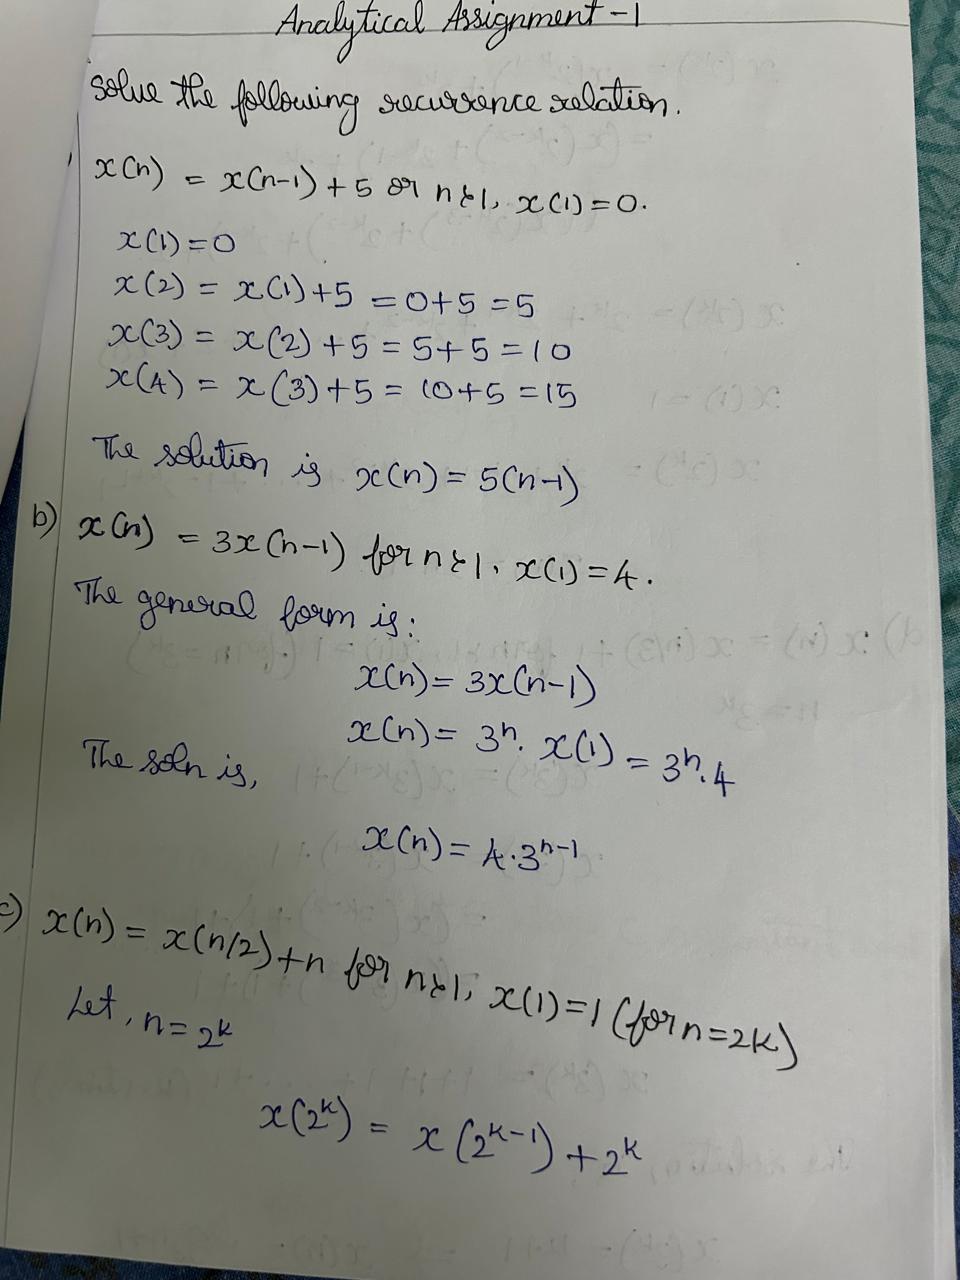 Analytical Assignment - 1
solve the following recurrence relation.
x(n) = x(n-1) + 5 or n>1, x(1) = 0.
x(1) = 0
x(2) = x(1) + 5 = 0+5 = 5
x(3) = x(2) + 5 = 5+5 = 10
x(4) = x(3) + 5 = 10+5 = 15
The solution is x(n) = 5(n-1)
b) x(n) = 3x(n-1) for n>1, x(1) = 4.
The general form is:
x(n) = 3x(n-1)
x(n) = 3ⁿ. x(1) = 3ⁿ.4
The soln is,
x(n) = 4.3ⁿ⁻¹
c) x(n) = x(n/2)+n for n>1, x(1)=1 (for n=2k)
Let, n = 2ᵏ
x(2ᵏ) = x(2ᵏ⁻¹) + 2ᵏ